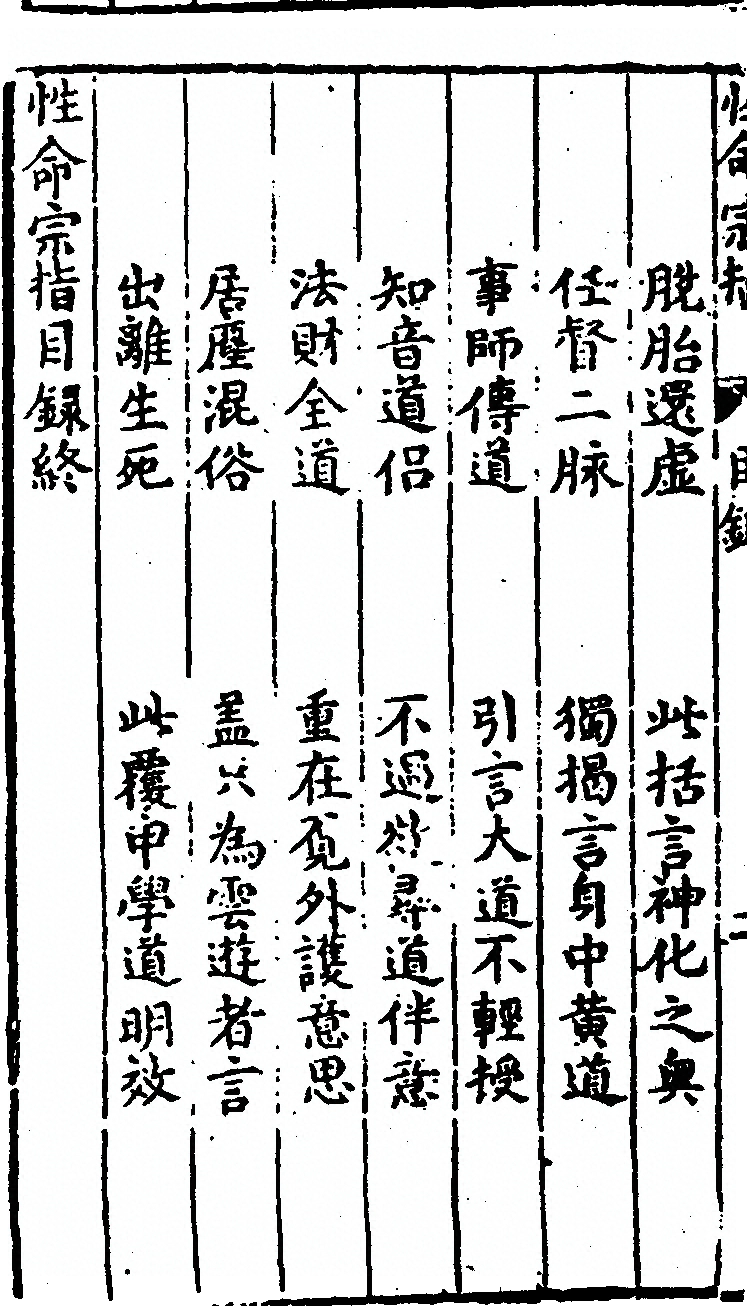 脫胎還虛　此括言神化之奧
任督二脉　獨揭言身中黄道
事師傳道　引言大道不輕授
知音道侣　不過欲尋道伴意
法財全道　重在覓外護意思
居廛混俗　盖只為雲遊者言
出離生死　此覆申學道明效
性命宗指目録終